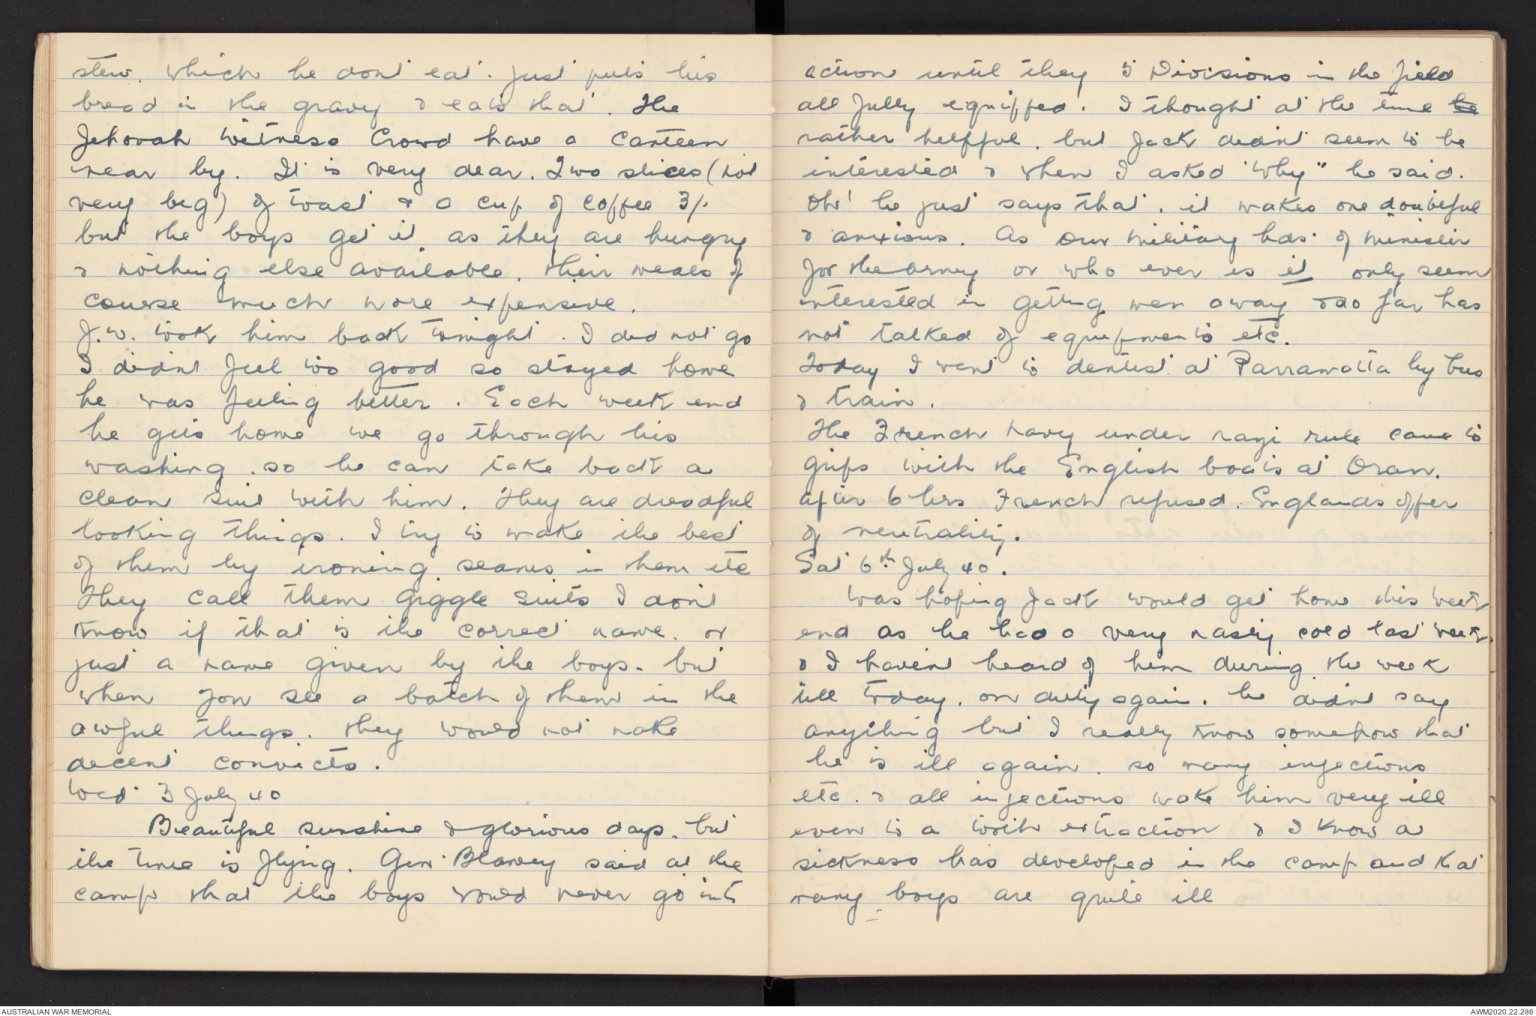 stew. which he dont eat. Just puts his
bread in the gravy & eats that. The
Jehovah Witness Crowd have a canteen
near by. It is very dear. Two slices (not
very big) of toast & a cup of coffee 3/-
but the boys get it as they are hungry
& nothing else available. Their meals of
course much more expensive.
J.W. took him back tonight. I did not go
I didnt feel too good so stayed home
he was feeling better. Each week end
he gets home we go through his
washing. so he can take back a
clean suit with him. They are dreadful
looking things. I try to make the best
of them by ironing seams in them etc
They call them Giggle Suits I dont
know if that is the correct name. or
just a name given by the boys. but
when you see a batch of them in the
awful things. they would not make
decent convicts.
Wed 3 July 40
Beautiful sunshine & glorious days. but
the time is flying. Gen. Blamey said at the
camp that the boys would never go into
action until they 5 Divisions in the field
all fully equipped. I thought at the time he
rather helpful. but Jack didnt seem to be
interested & when I asked "Why" he said.
Oh! he just says that. it makes one doubtful
& anxious. As our Military has. of minister
for the Army or who ever is it only seem
interested in getting men away & so far has
not talked of equipments etc.
Today I went to dentist at Parramatta by bus
& train.
The French Navy under nazi rule came to
grips with the English boats at Oran.
after 6 hrs French refused. Englands offer
of neutrality.
Sat 6th July 40.
Was hoping Jack would get home this week
end as he had a very nasty cold last week.
& I havent heard of him during the week
till today. on duty again. he didnt say
anything but I really know somehow that
he is ill again. so many injections
etc. & all injections make him very ill
even to a tooth extraction & I know a
sickness has developed in the camp and that
many boys are quite ill
AUSTRALIAN WAR MEMORIAL
AWM2020.22.286